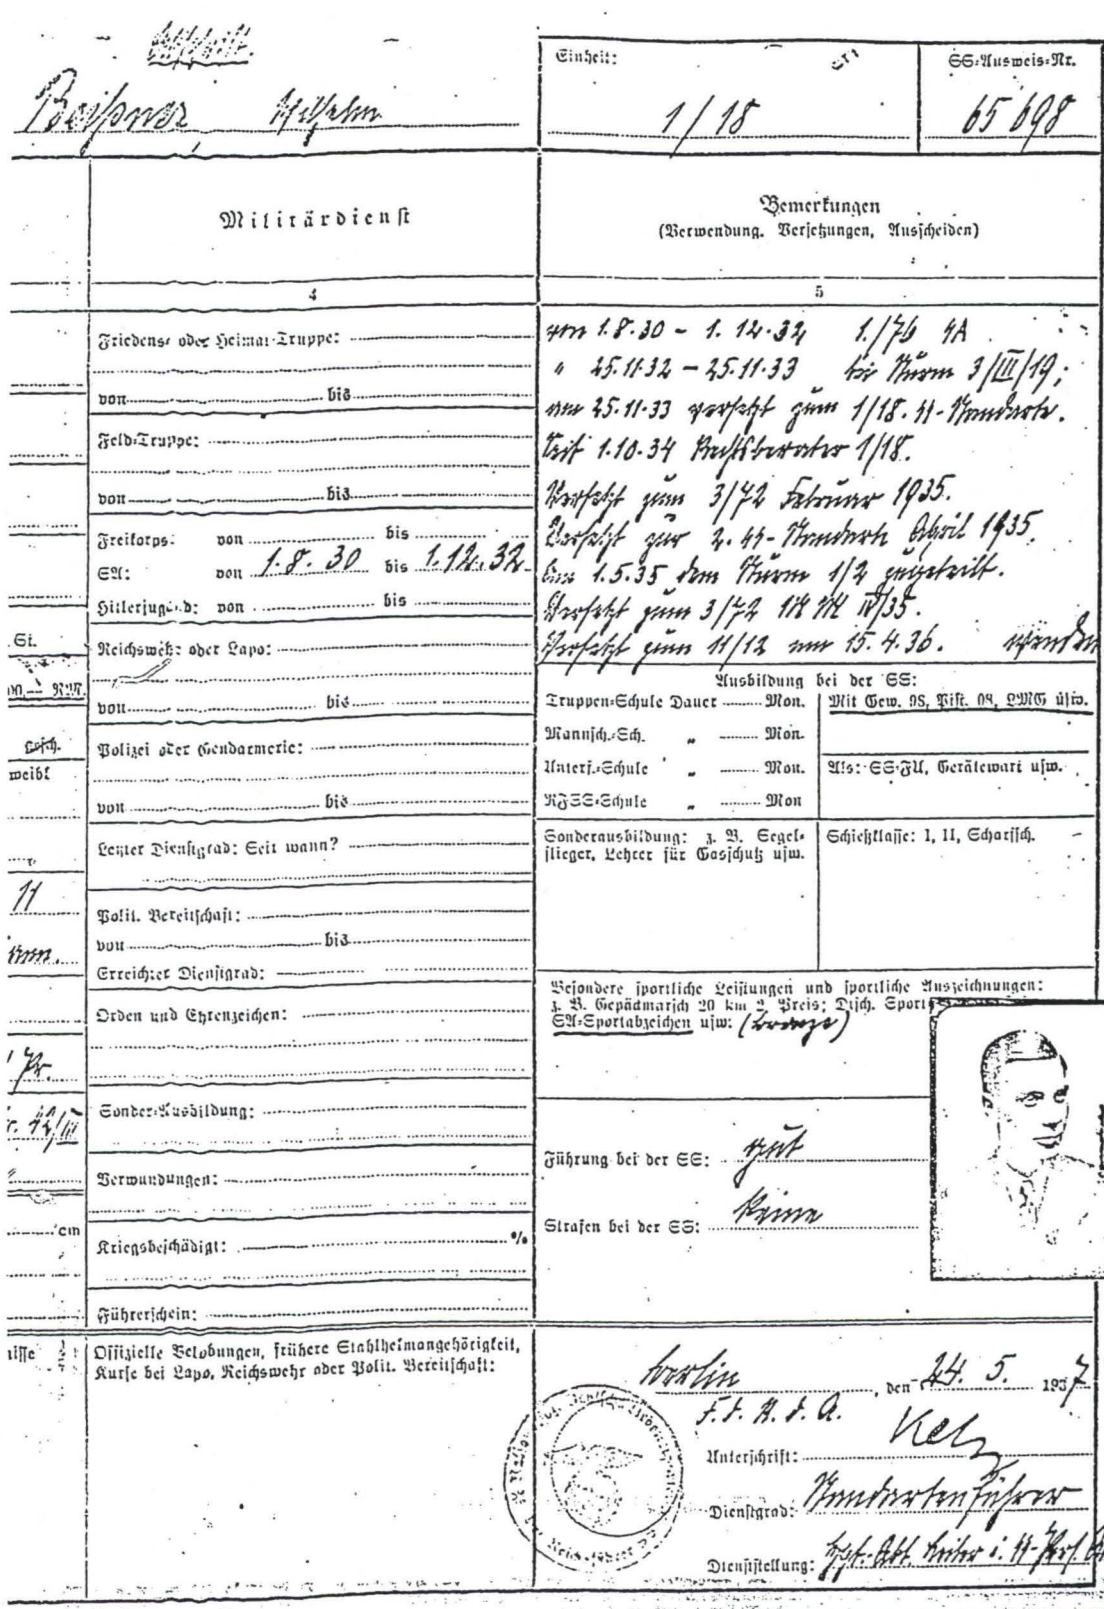 Abschrift.
Beißner, Wilhelm
Einheit:
1/18
SS-Ausweis-Nr.
65 698
Militärdienst
Bemerkungen
(Verwendung. Versetzungen, Ausscheiden)
4
5
Friedens- oder Heimat-Truppe:
von bis
Feld-Truppe:
von bis
Freikorps: von bis
SA: von 1.8.30 bis 1.12.32
Hitlerjugend: von bis
Reichsweh: oder Lapo:
von bis
Polizei oder Gendarmerie:
von bis
Letzter Dienstgrad: Seit wann?
Polit. Bereitschaft:
von bis
Erreichter Dienstgrad:
Orden und Ehrenzeichen:
Sonder-Ausbildung:
Verwundungen:
Kriegsbeschädigt: %
Führerschein:
Offizielle Belobungen, frühere Stahlhelmangehörigkeit,
Kurse bei Lapo, Reichswehr oder Polit. Bereitschaft:
St.
RM.
gesch.
weibl
11
Pr.
42/III
cm
nisse
von 1.8.30 – 1.12.32 1./76 SA
" 25.11.32 – 25.11.33 bei Sturm 3/III/19;
am 25.11.33 versetzt zum 1/18. SS-Standarte.
Seit 1.10.34 Rechtsberater 1/18.
Versetzt zum 3/72 Februar 1935.
Versetzt zur 2. SS-Standarte April 1935.
Am 1.5.35 dem Sturm 1/2 zugeteilt.
Versetzt zum 3/72 IV/35.
Versetzt zum 11/12 am 15.4.36. wenden
Ausbildung bei der SS:
Truppen-Schule Dauer Mon.
Mannsch.-Sch. " Mon.
Unterf.-Schule " Mon.
RFSS-Schule " Mon
Mit Gew. 98, Pist. 08, LMG usw.
Als: SS-FU, Gerätewart usw.
Sonderausbildung: z. B. Segel-
flieger, Lehrer für Gasschutz usw.
Schießklasse: I, II, Scharfsch.
Besondere sportliche Leistungen und sportliche Auszeichnungen:
z. B. Gepäckmarsch 20 km 2. Preis; Dtsch. Sport
SA-Sportabzeichen usw: (bronze)
Führung bei der SS: gut
Strafen bei der SS: keine
Berlin, den 24. 5. 1937
F.d.R.d.A.
Unterschrift:
Dienstgrad: Standartenführer
Dienststellung: Hpt.-Abt. Leiter i. SS-Pers.